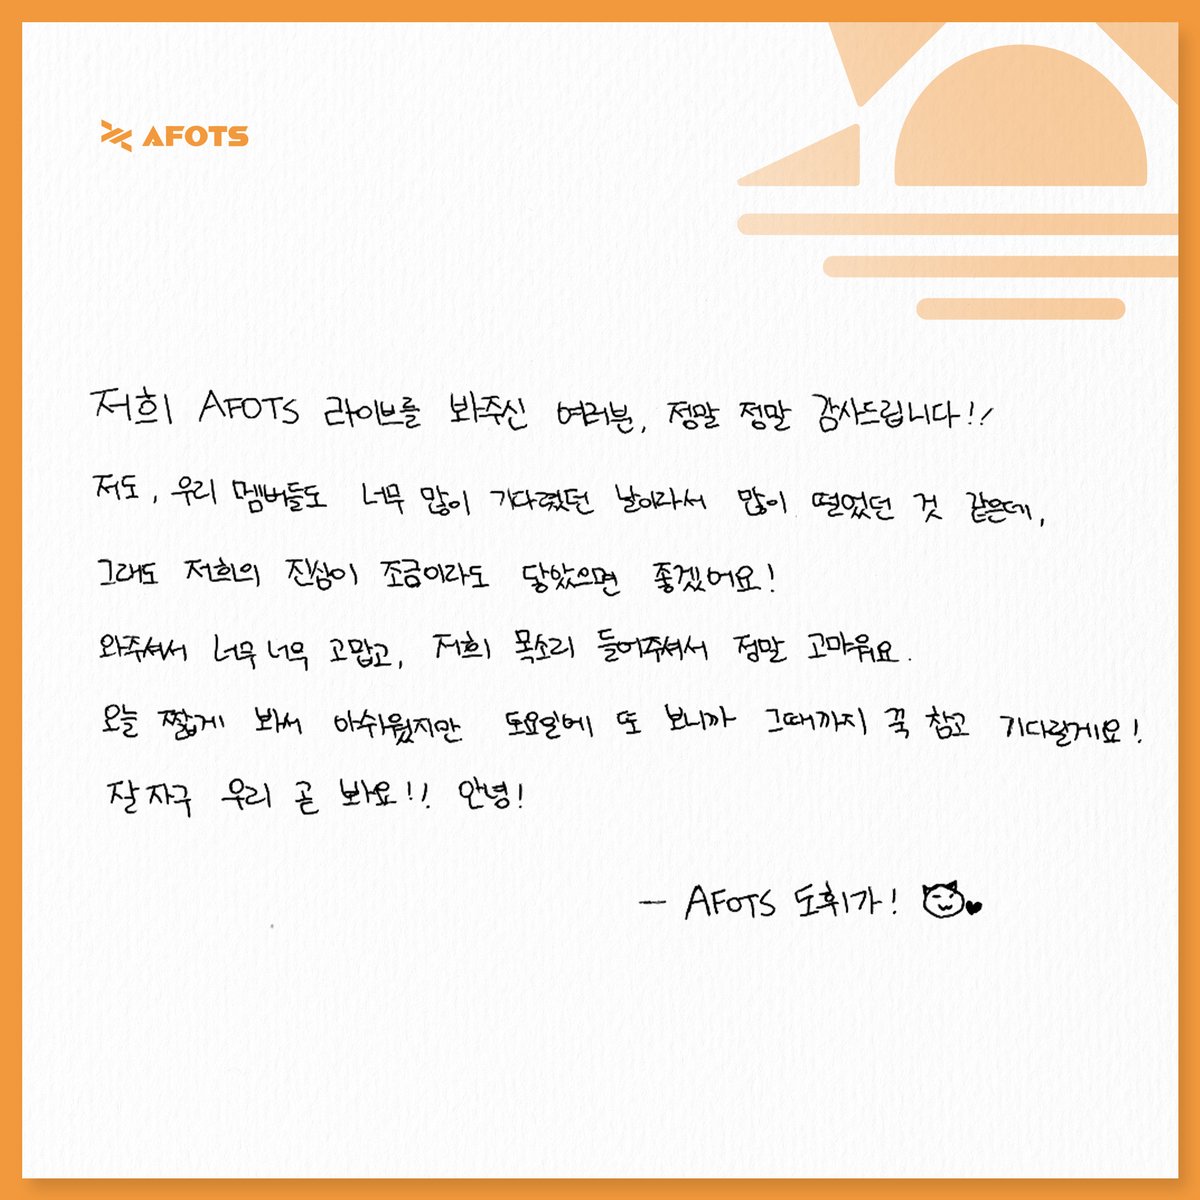 AFOTS
저희 AFOTS 라이브를 봐주신 여러분, 정말 정말 감사드립니다!!
저도, 우리 멤버들도 너무 많이 기다렸던 날이라서 많이 떨었던 것 같은데,
그래도 저희의 진심이 조금이라도 닿았으면 좋겠어요!
와주셔서 너무너무 고맙고, 저희 목소리 들어주셔서 정말 고마워요.
오늘 짧게 봐서 아쉬웠지만 토요일에 또 보니까 그때까지 꾹 참고 기다릴게요!
잘자구 우리 곧 봐요!! 안녕!
- AFOTS 도휘가!